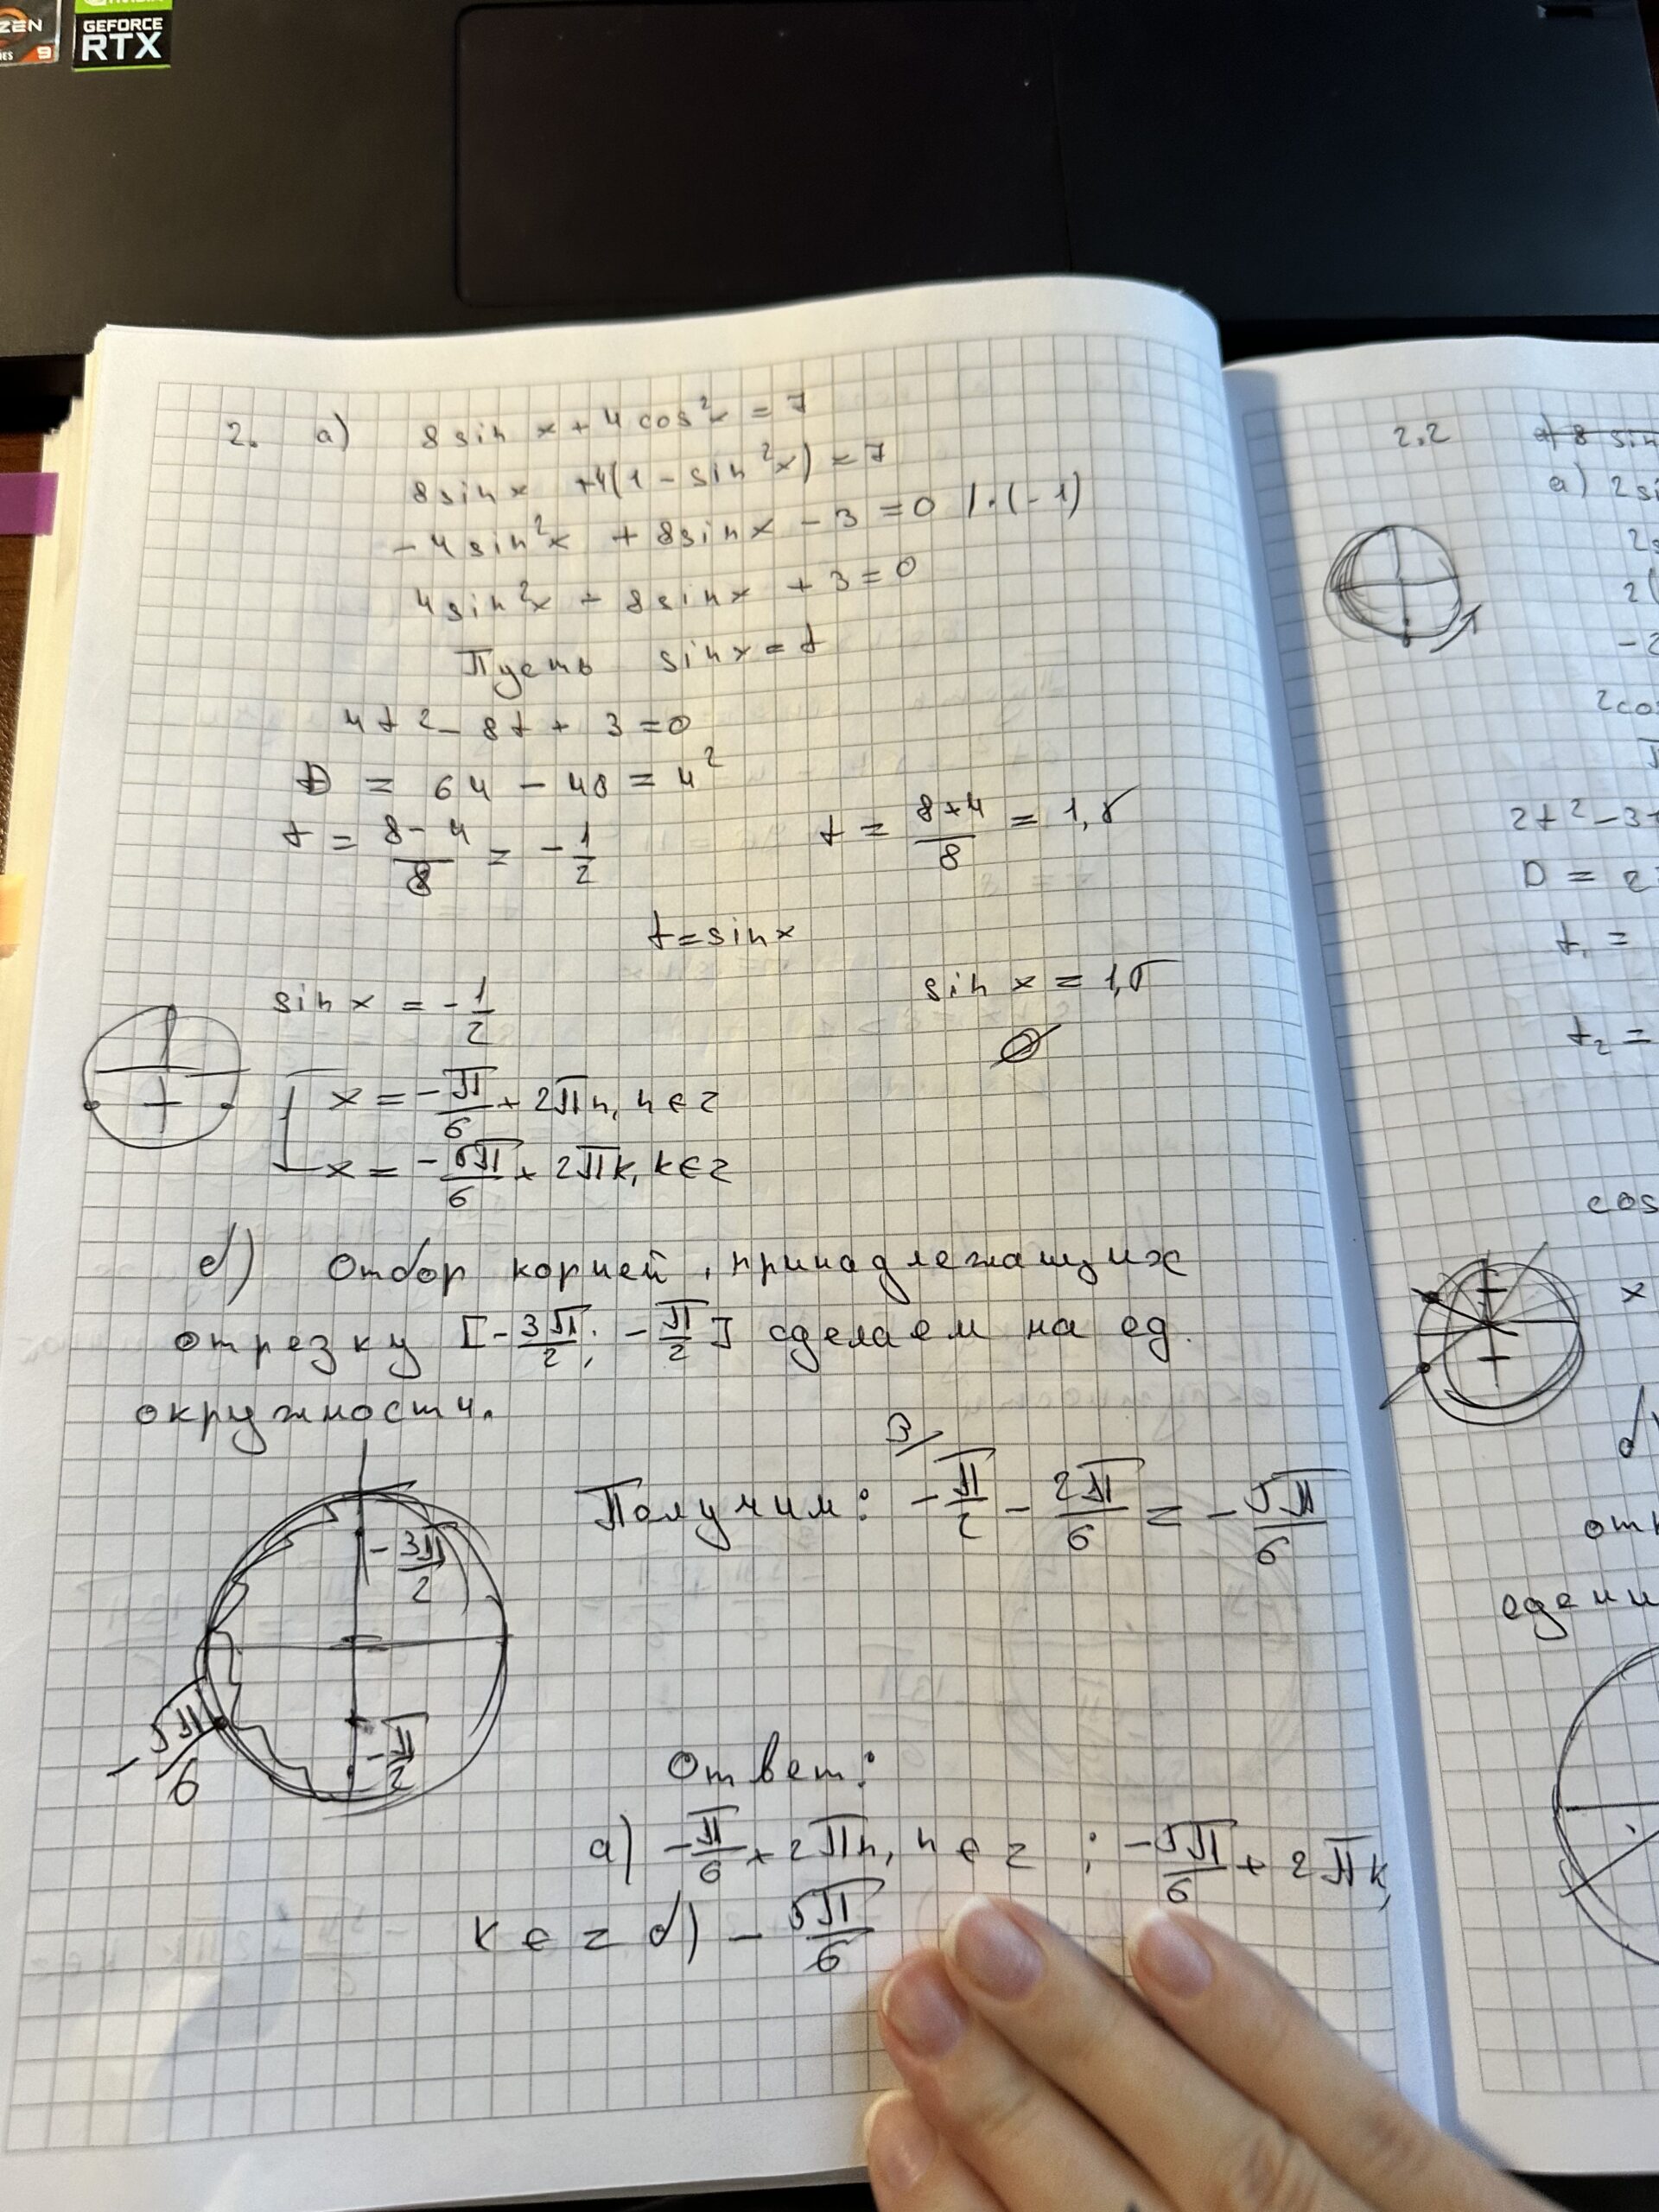 ZEN
9
GEFORCE
RTX
2. а) 8 sin x + 4 cos²x = 7
8 sin x + 4(1 - sin²x) = 7
- 4 sin²x + 8 sin x - 3 = 0 | · (-1)
4 sin²x - 8 sin x + 3 = 0
Пусть sin x = t
4t² - 8t + 3 = 0
D = 64 - 48 = 4²
t = (8 - 4)/8 = - 1/2
t = (8 + 4)/8 = 1,5
t = sin x
sin x = - 1/2
sin x = 1,5
∅
x = - π/6 + 2πn, n ∈ z
x = - 5π/6 + 2πk, k ∈ z
б) Отбор корней, принадлежащих
отрезку [- 3π/2 ; - π/2] сделаем на ед.
окружности.
Получим: - π/2 - 2π/6 = - 5π/6
3/
- 3π/2
- 5π/6
- π/2
Ответ:
а) - π/6 + 2πn, n ∈ z ; - 5π/6 + 2πk,
k ∈ z б) - 5π/6
2.2
8 sin
а)
2cos
2t² - 3t
D =
t₁ =
t₂ =
cos
x